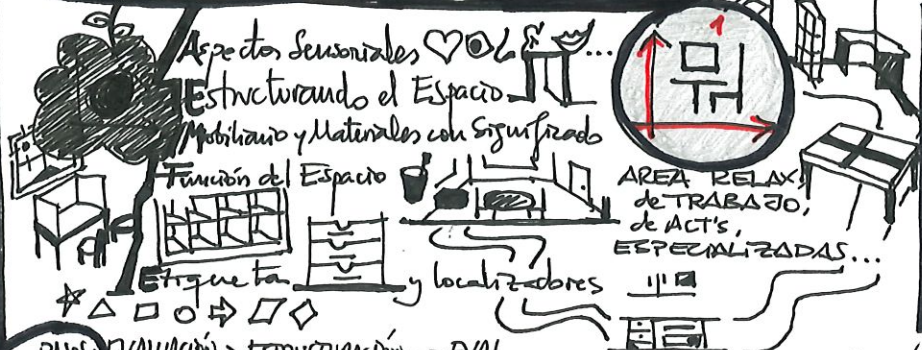 Aspectos Sensoriales ...
Estructurando el Espacio
Mobiliario y Materiales con Significado
Función del Espacio
1
AREA RELAX,
de TRABAJO,
de ACT's,
ESPECIALIZADAS...
Etiquetas y localizadores